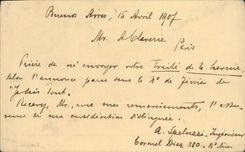 Buenos Aires, 16 Avril 1907
Mr. A Claverie
Paris
Prière de m'envoyer votre Traité de la hernie
selon l'annonce parue dans le No de Février de
"Je Sais tout.
Recevez, Mr, avec mes remerciements, l'assu-
rance de ma considération distinguée.
A. Ingénieur
Coronel Diaz 380 - B. Aires